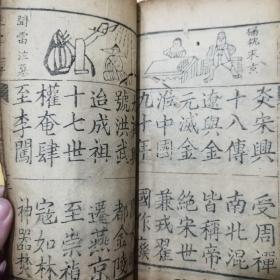 炎宋興 受周禪
十八傳 南北混
遼與金 皆稱帝
元滅金 絕宋世
涖中國 兼戎翟
九十年 國祚廢
聞雷泣墓
號洪武 都金陵
迨成祖 遷燕京
十七世 至崇禎
權奄肆 寇如林
至李闖 神器焚